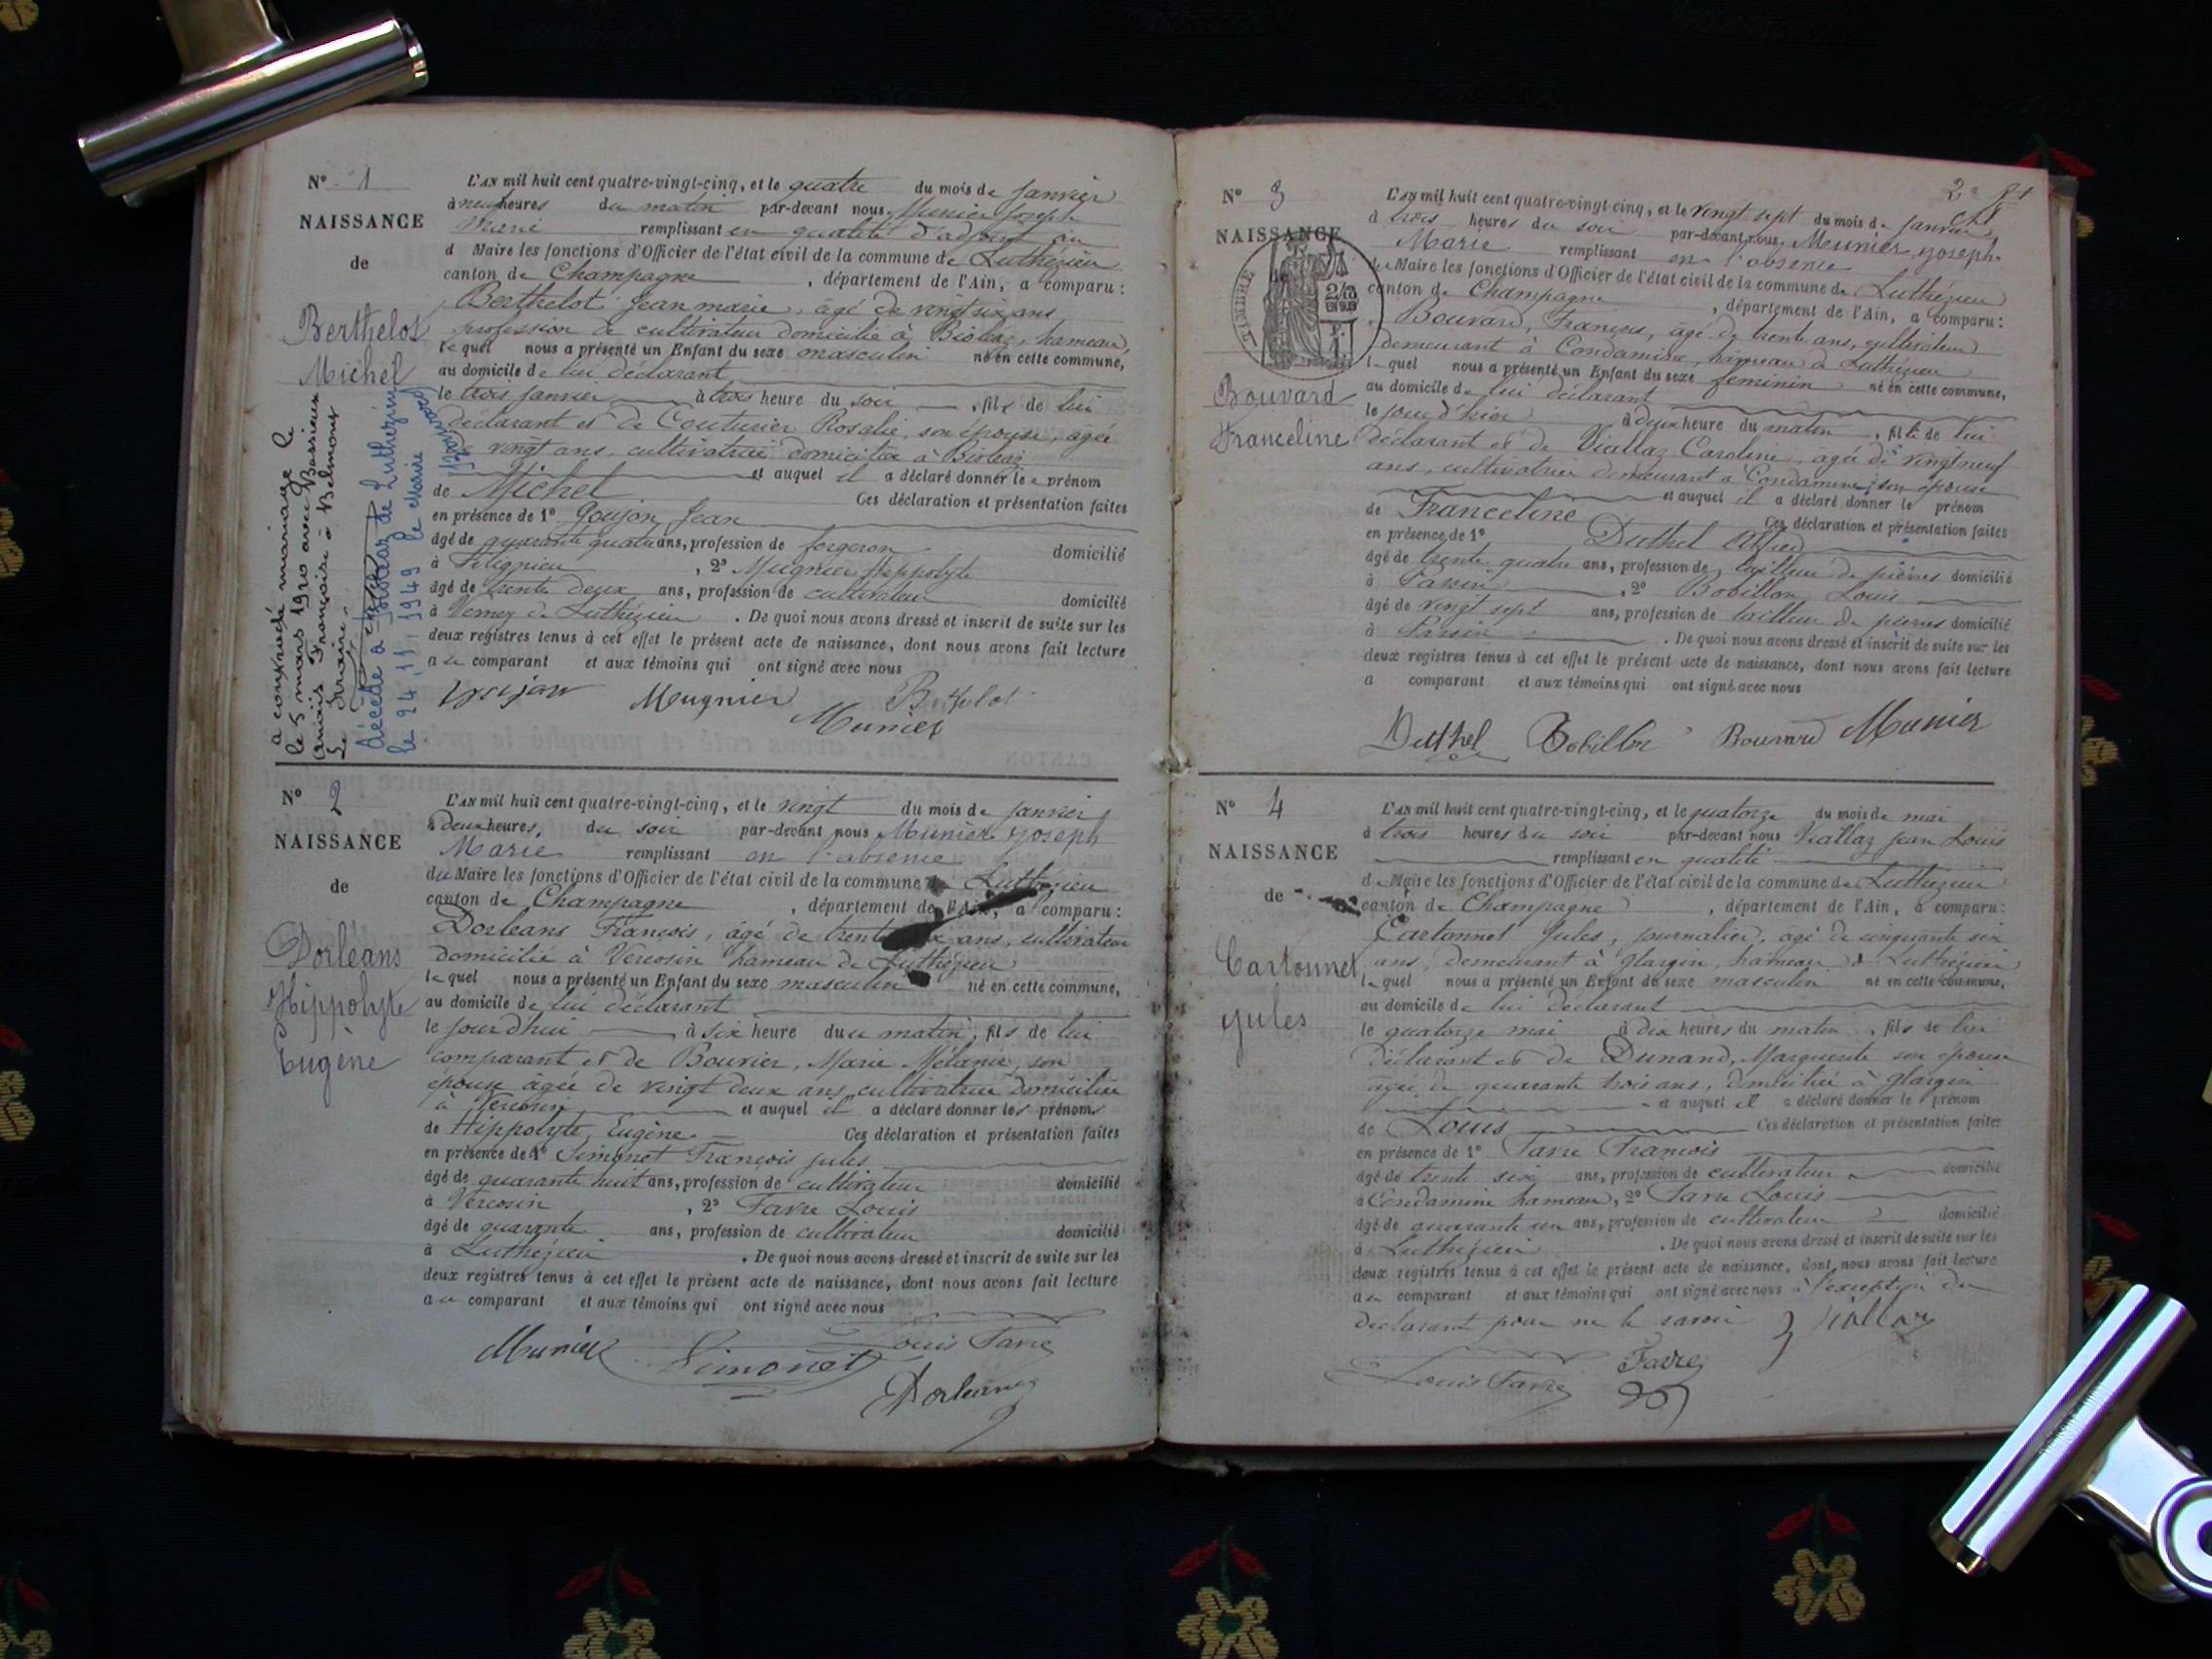 N° 1
NAISSANCE
de
Berthelot
Michel
a contracté mariage le
le 5 mars 1910 avec
Anaïs Françoise à Belmont
décédé à Bioleaz de Luthézieu
le 24.11.1949 le Maire
L'AN mil huit cent quatre-vingt-cinq, et le quatre du mois de Janvier
à neuf heures du matin par-devant nous Munier Joseph
Marie remplissant en qualité d'adjoint au
d Maire les fonctions d'Officier de l'état civil de la commune de Luthézieu
canton de Champagne, département de l'Ain, a comparu :
Berthelot Jean marie, âgé de vingt six ans
profession de cultivateur domicilié à Bioleaz, hameau,
lequel nous a présenté un Enfant du sexe masculin né en cette commune,
au domicile de lui déclarant
le trois janvier à trois heure du soir, fils de lui
déclarant et de Couturier Rosalie, son épouse, agée
vingt ans, cultivatrice domiciliée à Bioleaz
et auquel il a déclaré donner le prénom
de Michel Ces déclaration et présentation faites
en présence de 1° Goujon Jean
âgé de quarante quatre ans, profession de forgeron domicilié
à , 2° Mugnier Hippolyte
âgé de trente deux ans, profession de cultivateur domicilié
à Verney de Luthézieu. De quoi nous avons dressé et inscrit de suite sur les
deux registres tenus à cet effet le présent acte de naissance, dont nous avons fait lecture
au comparant et aux témoins qui ont signé avec nous
Goujon Mugnier B. thelot
Munier
N° 2
NAISSANCE
de
Dorléans
Hippolyte
Eugène
L'AN mil huit cent quatre-vingt-cinq, et le vingt du mois de Janvier
à deux heures, du soir par-devant nous Munier Joseph
Marie remplissant en l'absence
du Maire les fonctions d'Officier de l'état civil de la commune de Luthézieu
canton de Champagne, département de l'Ain, a comparu :
Dorleans François, âgé de trente ans, cultivateur
domicilié à Vercosin hameau de Luthézieu
lequel nous a présenté un Enfant du sexe masculin né en cette commune,
au domicile de lui déclarant
le jourd'hui à six heure du matin, fils de lui
comparant et de Bouvier, Marie Mélanie, son
épouse âgée de vingt deux ans, cultivatrice domiciliée
à Vercosin et auquel il a déclaré donner les prénoms
de Hippolyte, Eugène. Ces déclaration et présentation faites
en présence de 1° Simonet François Jules
âgé de quarante huit ans, profession de cultivateur domicilié
à Vercosin, 2° Favre Louis
âgé de quarante ans, profession de cultivateur domicilié
à Luthézieu. De quoi nous avons dressé et inscrit de suite sur les
deux registres tenus à cet effet le présent acte de naissance, dont nous avons fait lecture
au comparant et aux témoins qui ont signé avec nous
Munier Simonet Louis Favre
Dorleans
N° 3
NAISSANCE
TIMBRE
Bouvard
Franceline
L'AN mil huit cent quatre-vingt-cinq, et le vingt sept du mois de Janvier
à trois heures du soir par-devant nous Munier, Joseph
Marie remplissant en l'absence
du Maire les fonctions d'Officier de l'état civil de la commune de Luthézieu
canton de Champagne, département de l'Ain, a comparu :
Bouvard, François, âgé de trente ans, cultivateur
demeurant à Condamine, hameau de Luthézieu
lequel nous a présenté un Enfant du sexe féminin né en cette commune,
au domicile de lui déclarant
le jour d'hier à deux heure du matin, fille de lui
déclarant et de Viallaz Caroline, agée de vingt neuf
ans, cultivatrice demeurant à Condamine, son épouse
et auquel il a déclaré donner le prénom
de Franceline Ces déclaration et présentation faites
en présence de 1° Duthel Alfred
âgé de trente quatre ans, profession de tailleur de pierres domicilié
à , 2° Bobillon, Louis
âgé de vingt sept ans, profession de tailleur de pierres domicilié
à . De quoi nous avons dressé et inscrit de suite sur les
deux registres tenus à cet effet le présent acte de naissance, dont nous avons fait lecture
a comparant et aux témoins qui ont signé avec nous
Duthel Bobillon Bouvard Munier
N° 4
NAISSANCE
de
Cartonnet
Jules
L'AN mil huit cent quatre-vingt-cinq, et le quatorze du mois de mai
à trois heures du soir par-devant nous Viallaz Jean Louis
remplissant en qualité
de Maire les fonctions d'Officier de l'état civil de la commune de Luthézieu
canton de Champagne, département de l'Ain, a comparu :
Cartonnet Jules, journalier, agé de cinquante six
ans, demeurant à Glargin, hameau de Luthézieu
lequel nous a présenté un Enfant du sexe masculin né en cette commune,
au domicile de lui déclarant
le quatorze mai à dix heures du matin, fils de lui
déclarant et de Dunand, Marguerite son épouse
agée de quarante trois ans, domiciliée à Glargin
et auquel il a déclaré donner le prénom
de Louis Ces déclaration et présentation faites
en présence de 1° Favre François
âgé de trente six ans, profession de cultivateur domicilié
à Condamine hameau, 2° Favre Louis
âgé de quarante un ans, profession de cultivateur domicilié
à Luthézieu. De quoi nous avons dressé et inscrit de suite sur les
deux registres tenus à cet effet le présent acte de naissance, dont nous avons fait lecture
au comparant et aux témoins qui ont signé avec nous à l'exception du
déclarant pour ne le savoir Viallaz
Louis Favre Favre